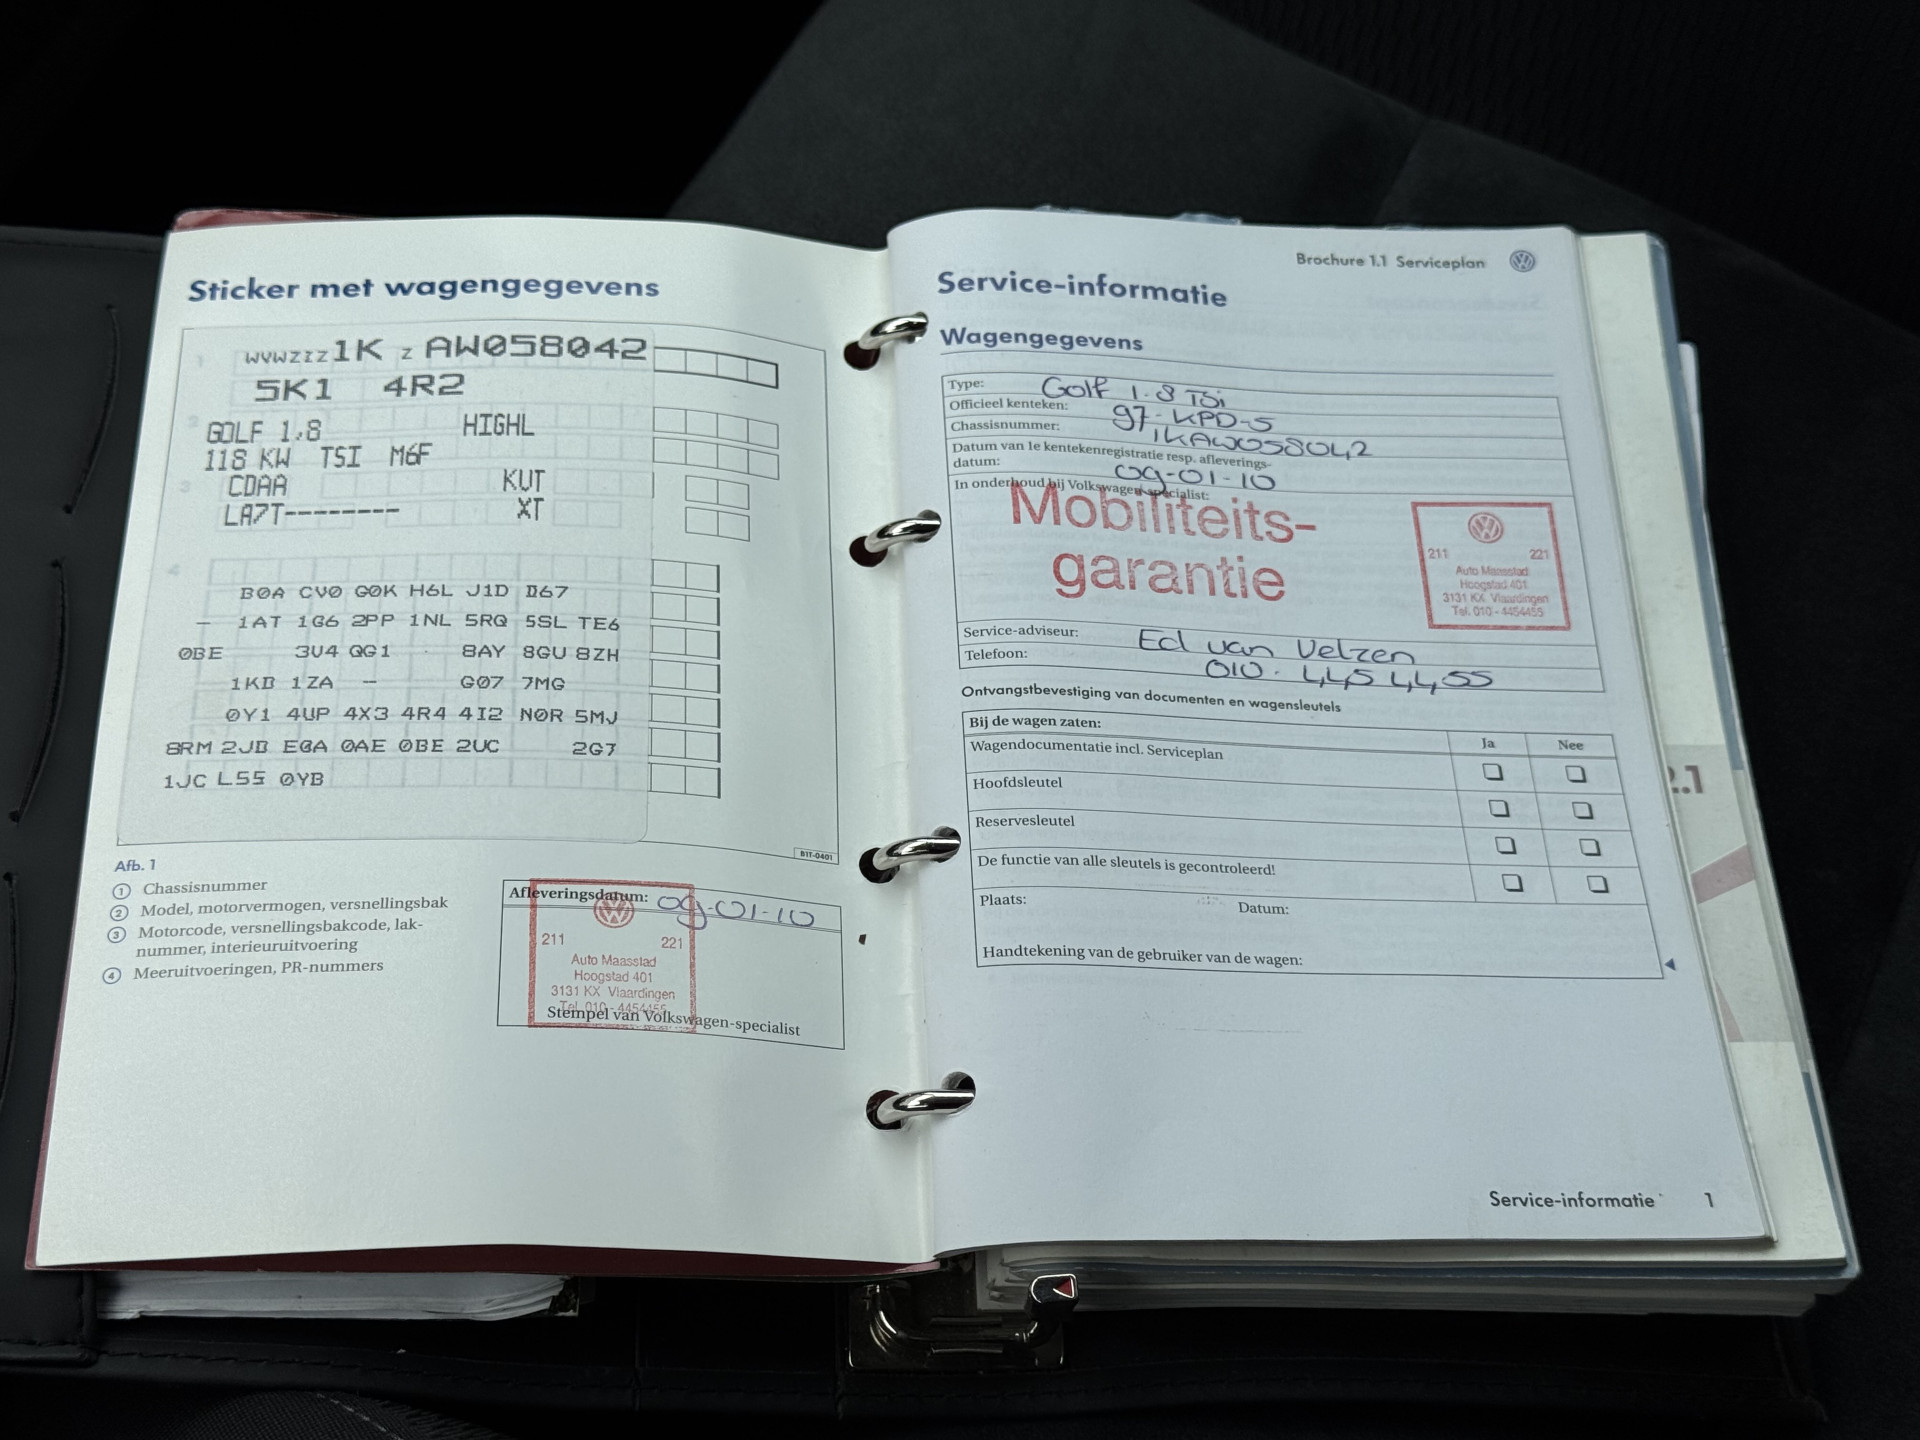 Sticker met wagengegevens
1
WVWZZZ1K Z AW058042
5K1 4R2
2
GOLF 1,8 HIGHL
118 KW TSI M6F
3
CDAA KUT
LA7T-------- XT
4
B0A CV0 G0K H6L J1D D67
- 1AT 1G6 2PP 1NL 5RQ 5SL TE6
0BE 3U4 QG1 8AY 8GU 8ZH
1KB 1ZA -- G07 7MG
0Y1 4UP 4X3 4R4 4I2 N0R 5MJ
8RM 2JB EGA 0AE 0BE 2UC 2G7
1JC L55 0YB
B1T-0401
Afb. 1
1 Chassisnummer
2 Model, motorvermogen, versnellingsbak
3 Motorcode, versnellingsbakcode, lak-
nummer, interieuruitvoering
4 Meeruitvoeringen, PR-nummers
Afleveringsdatum: 09-01-10
211 221
Auto Maasstad
Hoogstad 401
3131 KX Vlaardingen
Tel. 010 - 4454455
Stempel van Volkswagen-specialist
Brochure 1.1 Serviceplan
Service-informatie
Wagengegevens
Type: Golf 1.8 TSi
Officieel kenteken: 97-KPD-5
Chassisnummer: 1KAW058042
Datum van 1e kentekenregistratie resp. afleverings-
datum: 09-01-10
In onderhoud bij Volkswagen-specialist:
Mobiliteits-
garantie
211 221
Auto Maasstad
Hoogstad 401
3131 KX Vlaardingen
Tel. 010 - 4454455
Service-adviseur: Ed van Velzen
Telefoon: 010. 445 44 55
Ontvangstbevestiging van documenten en wagensleutels
Bij de wagen zaten:
Ja Nee
Wagendocumentatie incl. Serviceplan
Hoofdsleutel
Reservesleutel
De functie van alle sleutels is gecontroleerd!
Plaats: Datum:
Handtekening van de gebruiker van de wagen:
Service-informatie 1
2.1